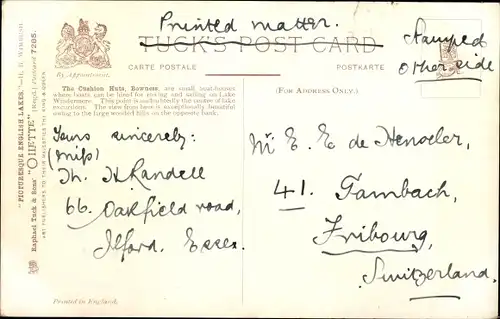 Printed matter.
TUCK'S POST CARD
CARTE POSTALE
POSTKARTE
Stamped
other side
By Appointment.
(FOR ADDRESS ONLY.)
The Cushion Huts, Bowness, are small boat-houses
where boats can be hired for rowing and sailing on Lake
Windermere. This point is undoubtedly the centre of lake
excursions. The view from here is exceptionally beautiful
owing to the large wooded hills on the opposite bank.
Yours sincerely:
(miss)
Th. H Randell
66. Oakfield road,
Ilford. Essex.
Mr. E. E de Henseler,
41. Tambach,
Fribourg,
Switzerland.
"PICTURESQUE ENGLISH LAKES."
Raphael Tuck & Sons' "OILETTE" [Regd.] Postcard 7285.
ART PUBLISHERS TO THEIR MAJESTIES THE KING & QUEEN
Printed in England.